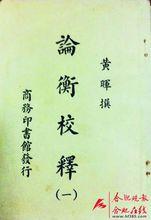 黃暉撰
論衡校釋
(一)
商務印書館發行
合肥晚報
合肥在線
hf365.com